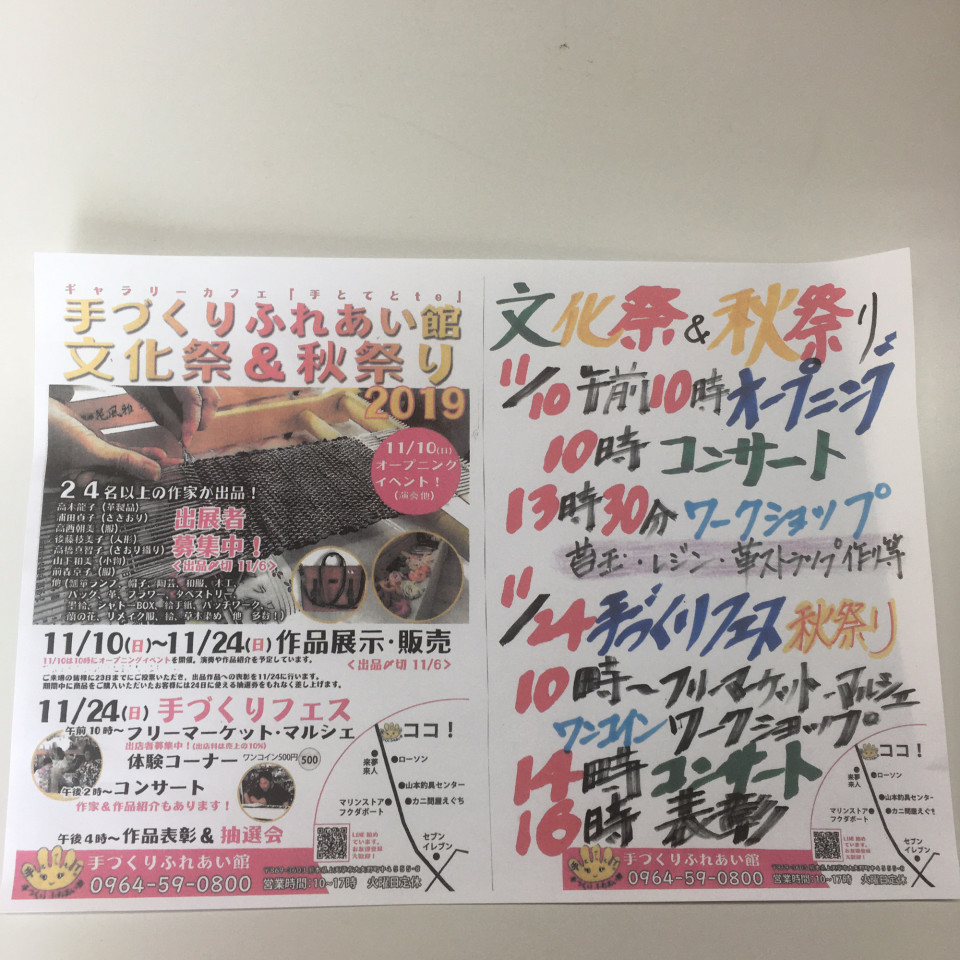 ギャラリーカフェ「手とてとte」
手づくりふれあい館
文化祭&秋祭り
2019
11/10(日)
オープニング
イベント!
(演奏他)
24名以上の作家が出品!
高木龍子(革製品)
浦田貞子(ささおり)
高西朝美(服)
後藤枝美子(人形)
高橋真智子(さおり織り)
山下和美(小物)
前森京子(服)
出展者
募集中!
<出品〆切 11/6>
バッグ、革、フラワー、タペストリー、
墨絵、シャドーBOX、絵手紙、パッチワーク、
蘭の花、リメイク服、絵、草木染め、他 多数!)
11/10(日)~11/24(日)作品展示・販売
11/10は10時にオープニングイベントを開催。演奏や作品紹介を予定しています。
<出品〆切 11/6>
ご来場の皆様に23日までにご投票いただき、出品作品への表彰を11/24に行います。
期間中に商品をご購入いただいたお客様には24日に使える抽選券をもれなく差し上げます。
11/24(日)手づくりフェス
午前10時~フリーマーケット・マルシェ
出店者募集中!(出店料は売上の10%)
体験コーナー ワンコイン500円 500
午後2時~コンサート
作家&作品紹介もあります!
午後4時~作品表彰&抽選会
ココ!
ローソン
来夢来人
山本釣具センター
カニ問屋えぐち
マリンストア
フクダポート
セブン
イレブン
手づくりふれあい館
0964-59-0800
営業時間:10~17時 火曜日定休
文化祭&秋祭り
11/10 午前10時オープニング
10時 コンサート
13時30分 ワークショップ
苔玉・レジン・革ストラップ作り等
11/24 手づくりフェス 秋祭り
10時~フリーマーケット・マルシェ
ワンコイン ワークショップ
14時 コンサート
16時 表彰
ココ!
来夢来人
ローソン
山本釣具センター
カニ問屋えぐち
マリンストア
フクダポート
セブン
イレブン
手づくりふれあい館
0964-59-0800
営業時間:10~17時 火曜日定休